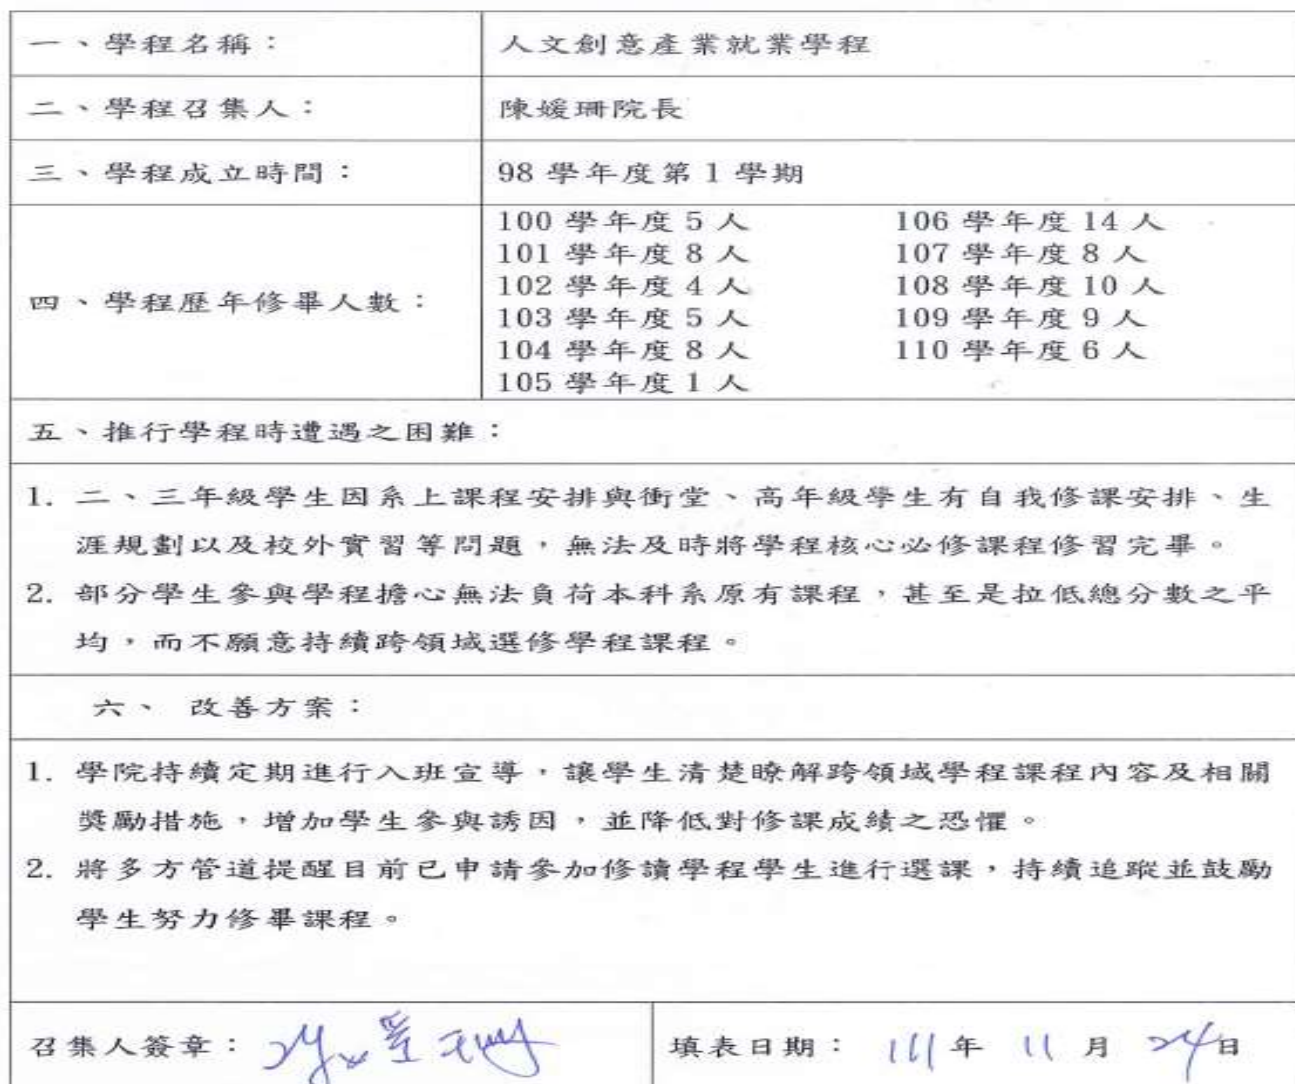 一、學程名稱：
人文創意產業就業學程
二、學程召集人：
陳媛珊院長
三、學程成立時間：
98 學年度第 1 學期
四、學程歷年修畢人數：
100 學年度 5 人
101 學年度 8 人
102 學年度 4 人
103 學年度 5 人
104 學年度 8 人
105 學年度 1 人
106 學年度 14 人
107 學年度 8 人
108 學年度 10 人
109 學年度 9 人
110 學年度 6 人
五、推行學程時遭遇之困難：
1. 二、三年級學生因系上課程安排與衝堂、高年級學生有自我修課安排、生
涯規劃以及校外實習等問題，無法及時將學程核心必修課程修習完畢。
2. 部分學生參與學程擔心無法負荷本科系原有課程，甚至是拉低總分數之平
均，而不願意持續跨領域選修學程課程。
六、 改善方案：
1. 學院持續定期進行入班宣導，讓學生清楚瞭解跨領域學程課程內容及相關
獎勵措施，增加學生參與誘因，並降低對修課成績之恐懼。
2. 將多方管道提醒目前已申請參加修讀學程學生進行選課，持續追蹤並鼓勵
學生努力修畢課程。
召集人簽章：
填表日期： 111 年 11 月 24 日